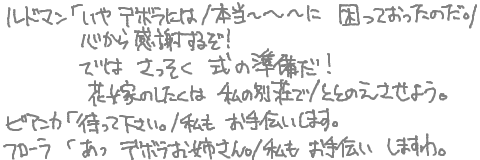 ルドマン「いや デボラには/本当〜〜〜に 困っておったのだ。/
心から感謝するぞ!
では さっそく 式の準備だ!
花嫁のしたくは 私の別荘で/ととのえさせよう。
ビアンカ「待って下さい。/私も お手伝いします。
フローラ「あっ デボラお姉さん。/私も お手伝い しますわ。